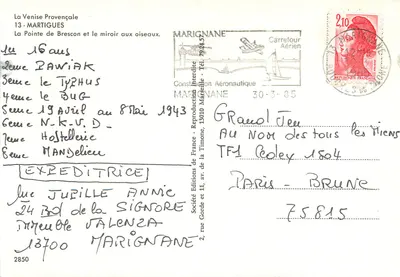 La Venise Provençale
13 - MARTIGUES
La Pointe de Brescon et le miroir aux oiseaux.
1er 16 ans
2eme ZAWIAK
3eme le TYPHUS
4eme le BUG
5eme 19 Avril au 8 Mai 1943
6eme N.K.V.D.
7eme Hostellerie
8eme MANDELIEU
EXPEDITRICE
JUBILLE ANNIE
24 Bd de la SIGNORE
immeuble VALENZA
13700 MARIGNANE
2850
Société Editions de France - Reproduction interdite
2, rue Goede et 11, av. de la Timone, 13010 Marseille - Tél. 79
MARIGNANE
Carrefour
Aérien
Construction Aéronautique
MARIGNANE 30-3-85
2,10
Grand Jeu
AU NOM des tous les Miens
TF1 Cedex 1504
PARIS - BRUNE
75815